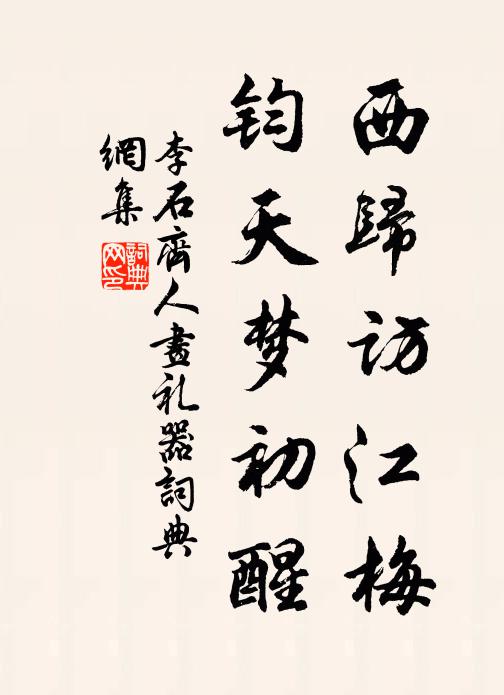 西歸访江梅
钧天梦初醒
李石齊人畫礼器詞典
網集
詞典网印